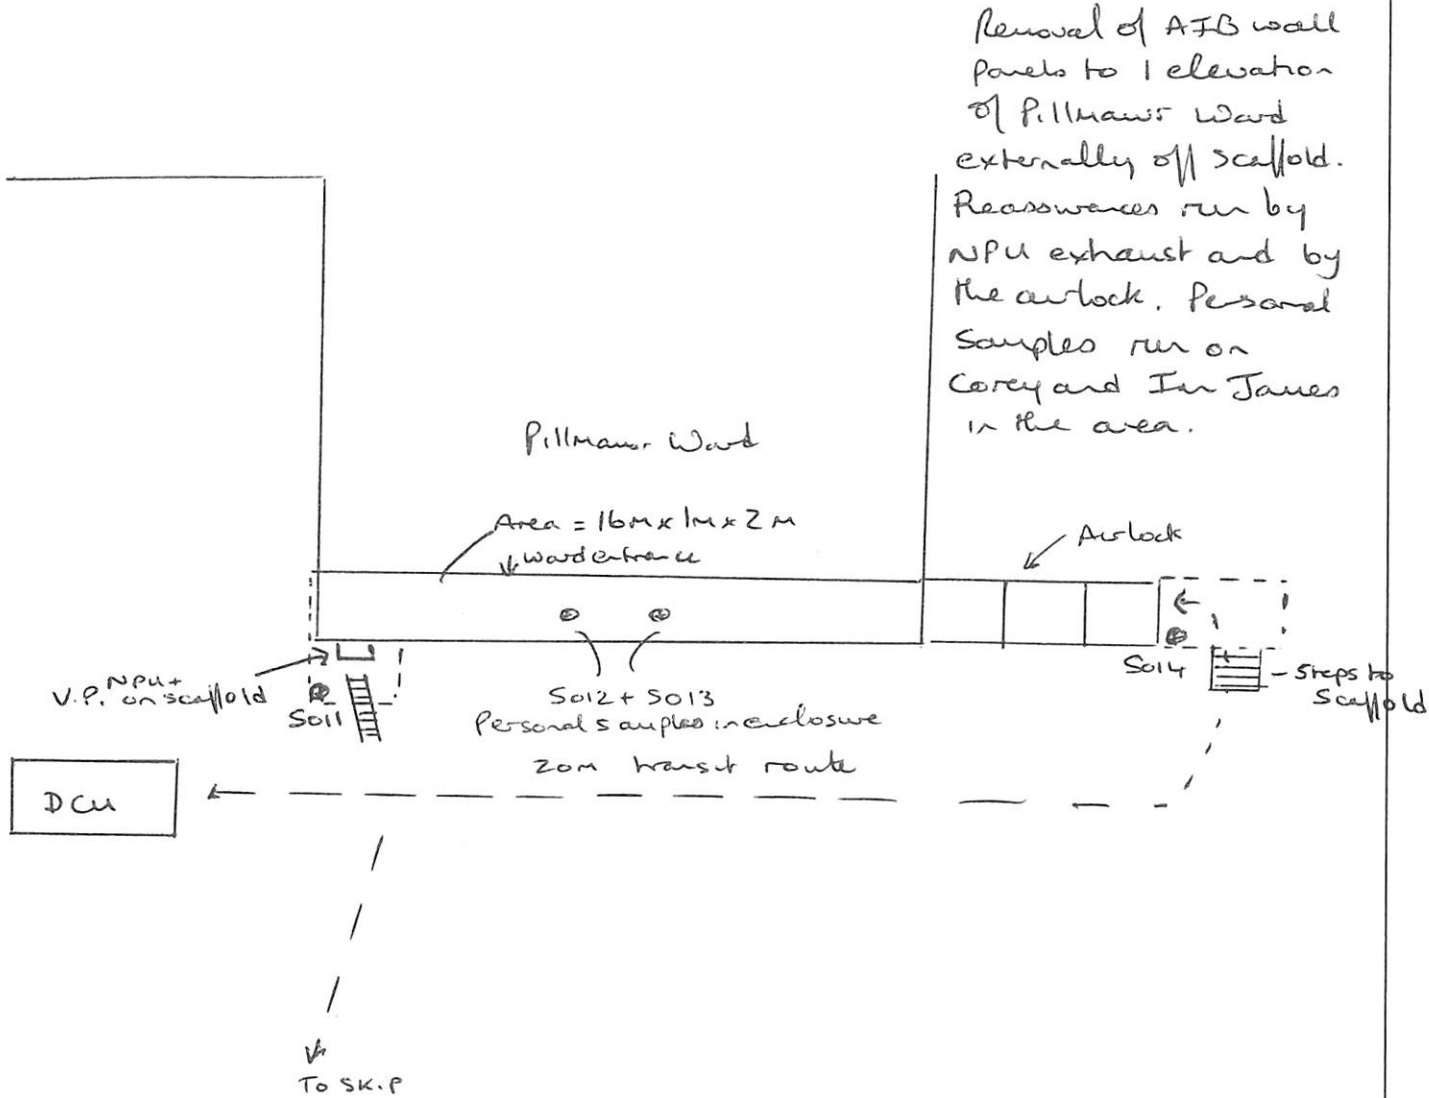 Removal of AIB wall
panels to 1 elevation
of Pillmawr Ward
externally off scaffold.
Reassurances run by
NPU exhaust and by
the airlock. Personal
Samples run on
Corey and Ian James
in the area.
Pillmawr Ward
Area = 16m x 1m x 2m
ward entrance
Airlock
NPU +
V.P. on scaffold
S011
S012 + S013
Personal samples in enclosure
S014
Steps to
Scaffold
20m transit route
DCU
To Skip